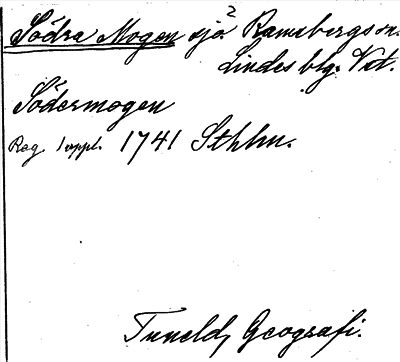 Södra Mogen sjö? Ramsbergs sn.
Lindes blg. Vst.
Södermogen
Reg. 1 uppl. 1741 Sthlm.
Tuneld, Geografi.